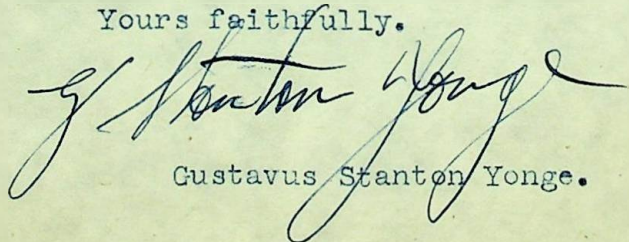 Yours faithfully.
G Stanton Yonge
Gustavus Stanton Yonge.